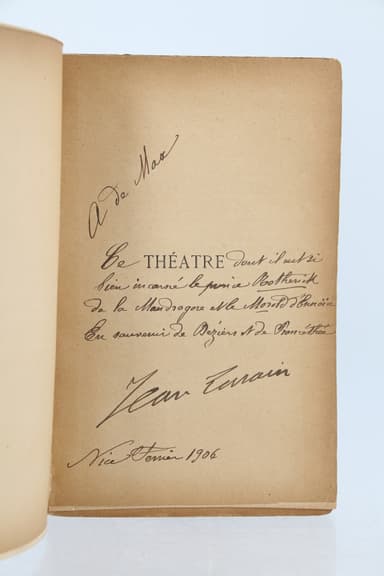 A de Max
Ce THÉATRE dont il eut si
bien incarné le prince Rotherick
de la Mandragore et le d'Ennoïa
En souvenir de Béziers et de Prométhée
Jean Lorrain
Nice Février 1906